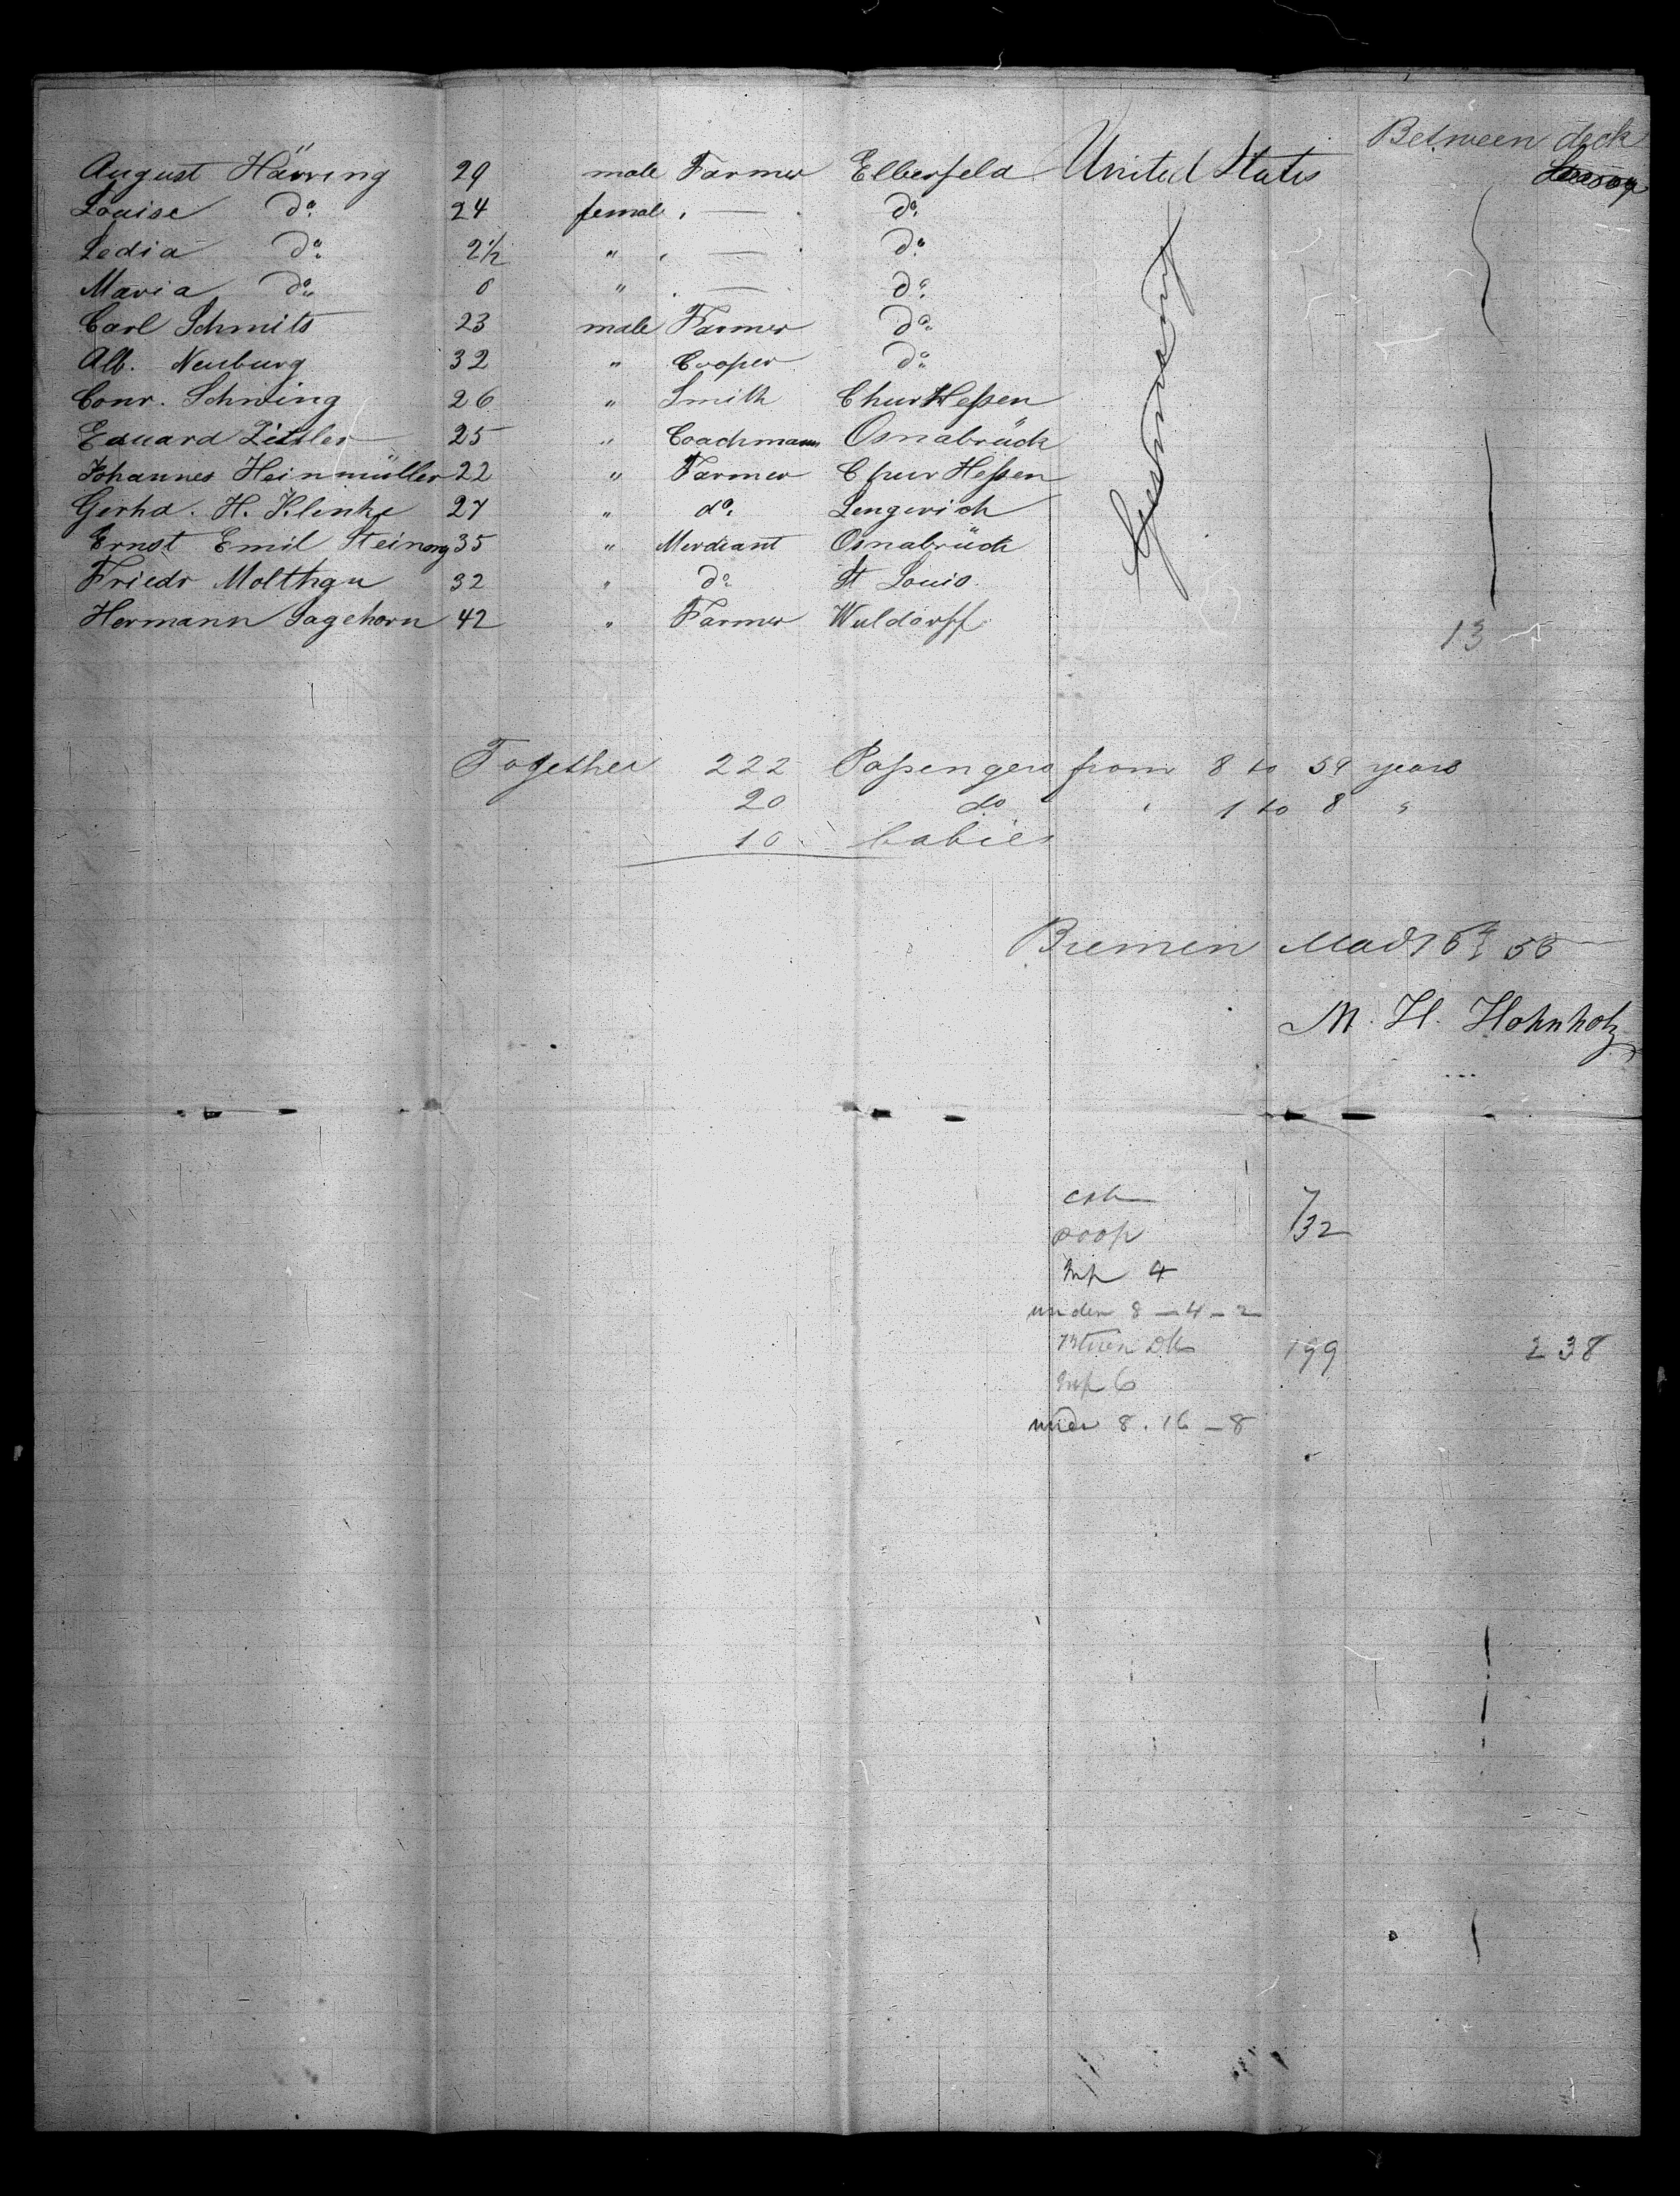 Between deck
August Härring 29 male Farmer Elberfeld United States
Louise do. 24 female " — do.
Ledia do. 2½ " " — do.
Maria do. 0 " " — do.
Carl Schmits 23 male Farmer do.
Alb. Neuburg 32 " Cooper do.
Conr. Schwing 26 " Smith Chur Heſsen
Eduard 25 " Coachmann Osnabrück
Johannes Heinmüller 22 " Farmer Chur Heſsen
Gerhd. H. Klenke 27 " do. Lengerich
Ernst Emil 35 " Merchant Osnabrück
Friedr 32 " do St Louis
Hermann Sagehorn 42 " Farmer Wuldorff
Germany
13
Together 222 Paſsengers from 8 to 59 years
20 do " 1 to 8 "
10 babies
Bremen
M. H. Hohnholz
cab 7
poop 32
Inf 4
under 8 — 4 — 2
Btween Dks 199 238
Inf 6
under 8 . 16 — 8